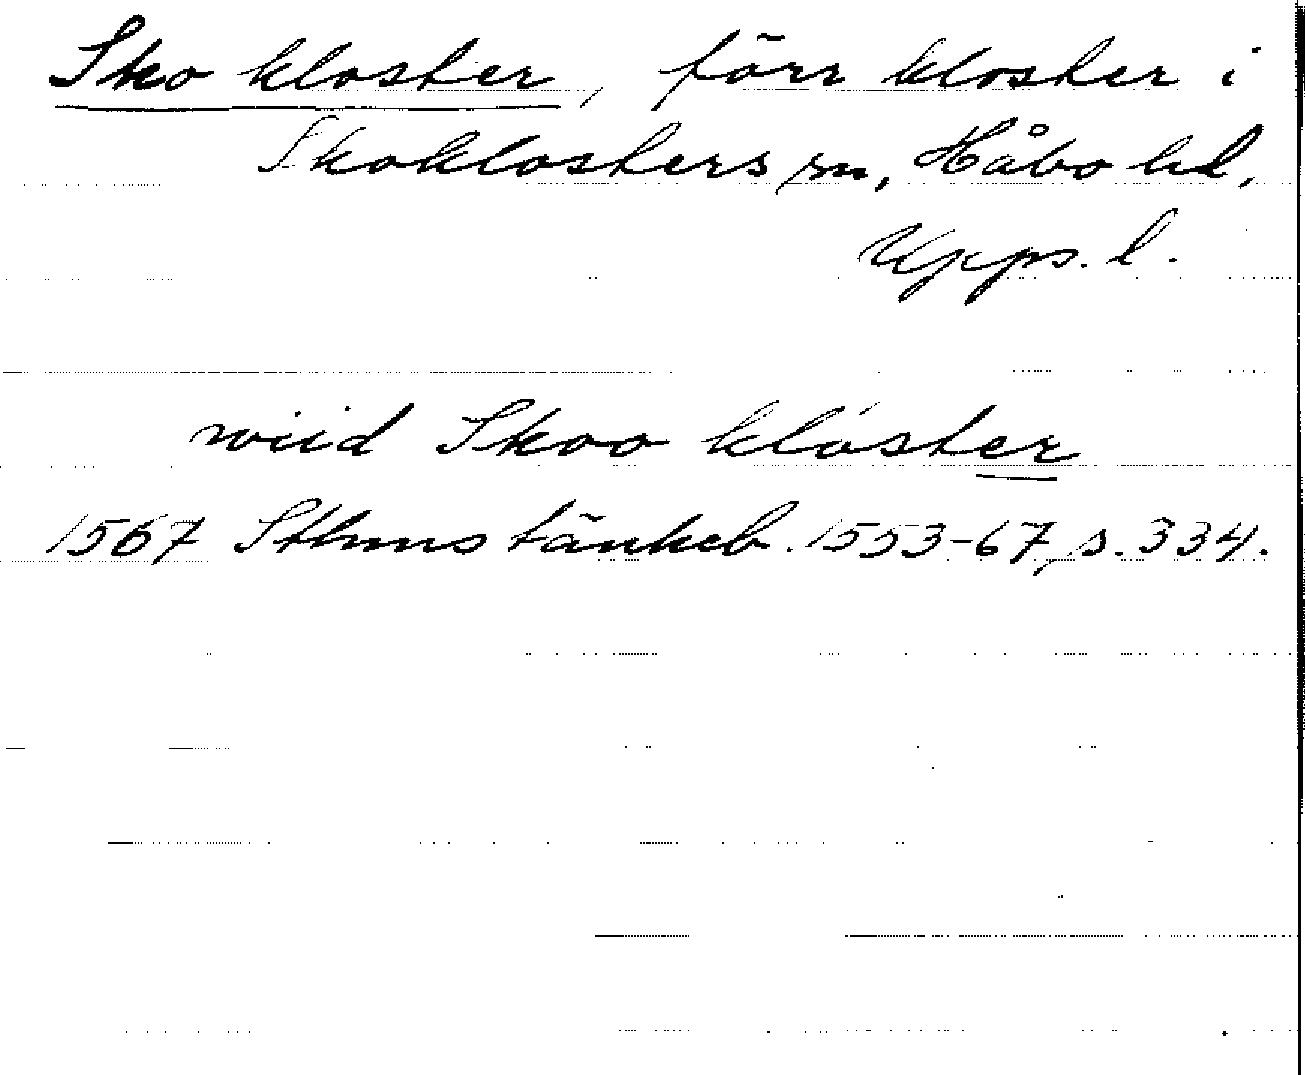 Sko kloster, förr kloster i
Skoklosters sn, Håbo hd,
Upps. l.
wiid Skoo kloster
1567 Sthms tänkeb. 1553-67, s. 334.